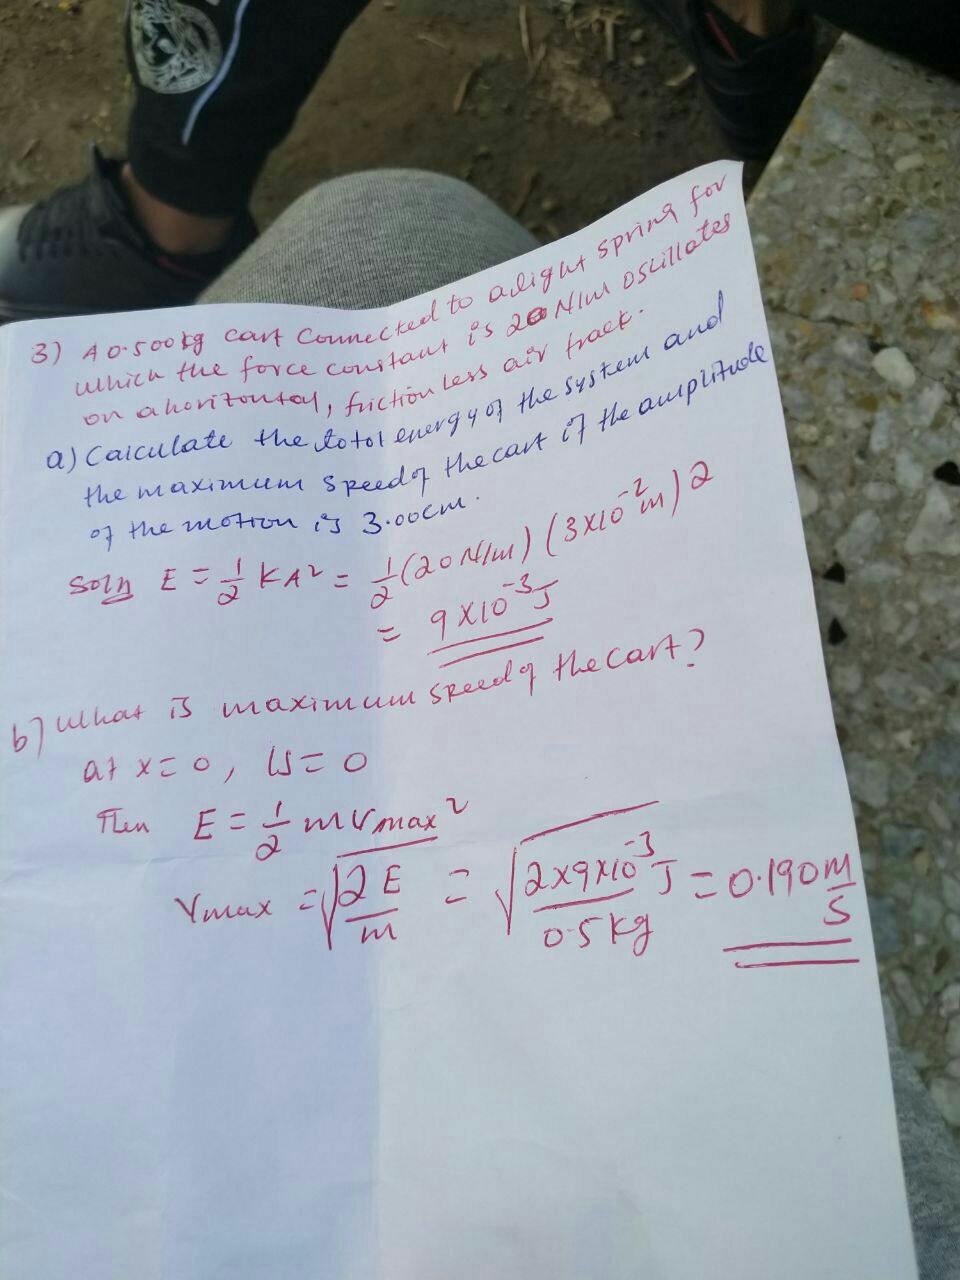 3) A 0.500kg cart connected to a light spring for
which the force constant is 20 N/m oscillates
on a horizontal, frictionless air track.
a) Calculate the total energy of the system and
the maximum speed of the cart if the amplitude
of the motion is 3.00cm.
Soln E = 1/2 KA² = 1/2 (20 N/m) (3x10⁻²m)2
= 9x10⁻³J
b) What is maximum speed of the cart?
at x=0, U=0
Then E = 1/2 mVmax²
Vmax = √(2E/m) = √(2x9x10⁻³J/0.5kg) = 0.190m/s